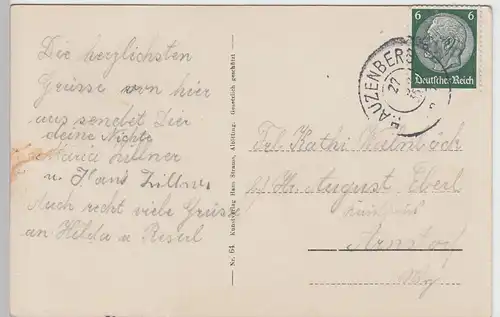 Die herzlichsten
Grüsse von hier
aus sendet Dier
deine Nichte
Maria Zillner
u. Hans Zillner
Auch recht viele Grüsse
an Hilda u Reserl
Nr. 64 Kunstverlag Hans Strauss, Altötting. Gesetzlich geschützt
6 6
Deutsches Reich
HAUZENBERG
Frl. Kathi
Hr. August Eberl
Arnstorf